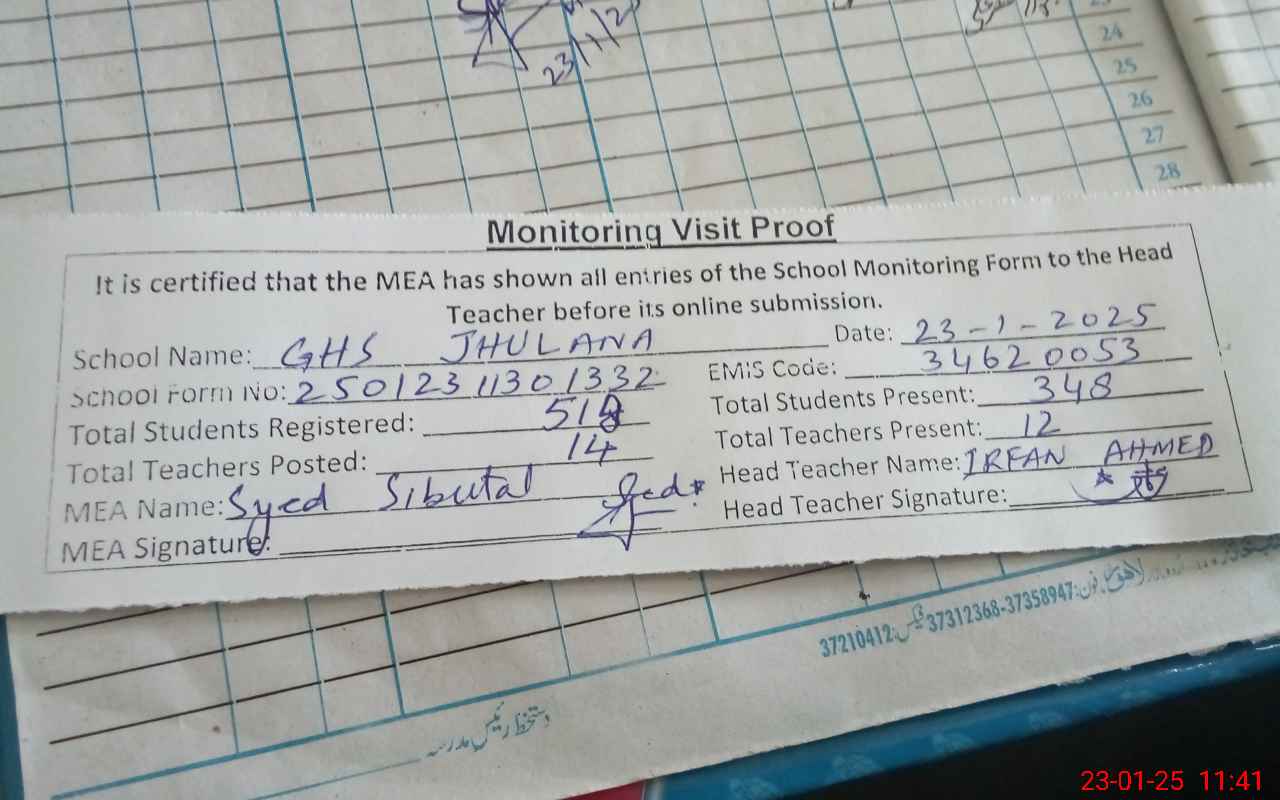 23/1/2
24
25
26
27
28
Monitoring Visit Proof
It is certified that the MEA has shown all entries of the School Monitoring Form to the Head
Teacher before its online submission.
School Name: GHS JHULANA Date: 23-1-2025
School Form No: 250123 1130 1332 EMIS Code: 34620053
Total Students Registered: Total Students Present: 348
Total Teachers Posted: 14 Total Teachers Present: 12
MEA Name: Syed Sibutal Head Teacher Name: IRFAN AHMED
MEA Signature: Head Teacher Signature:
لاہور فون: 37312368-37358947 37210412
دستخط رئیس مدرسہ
23-01-25 11:41